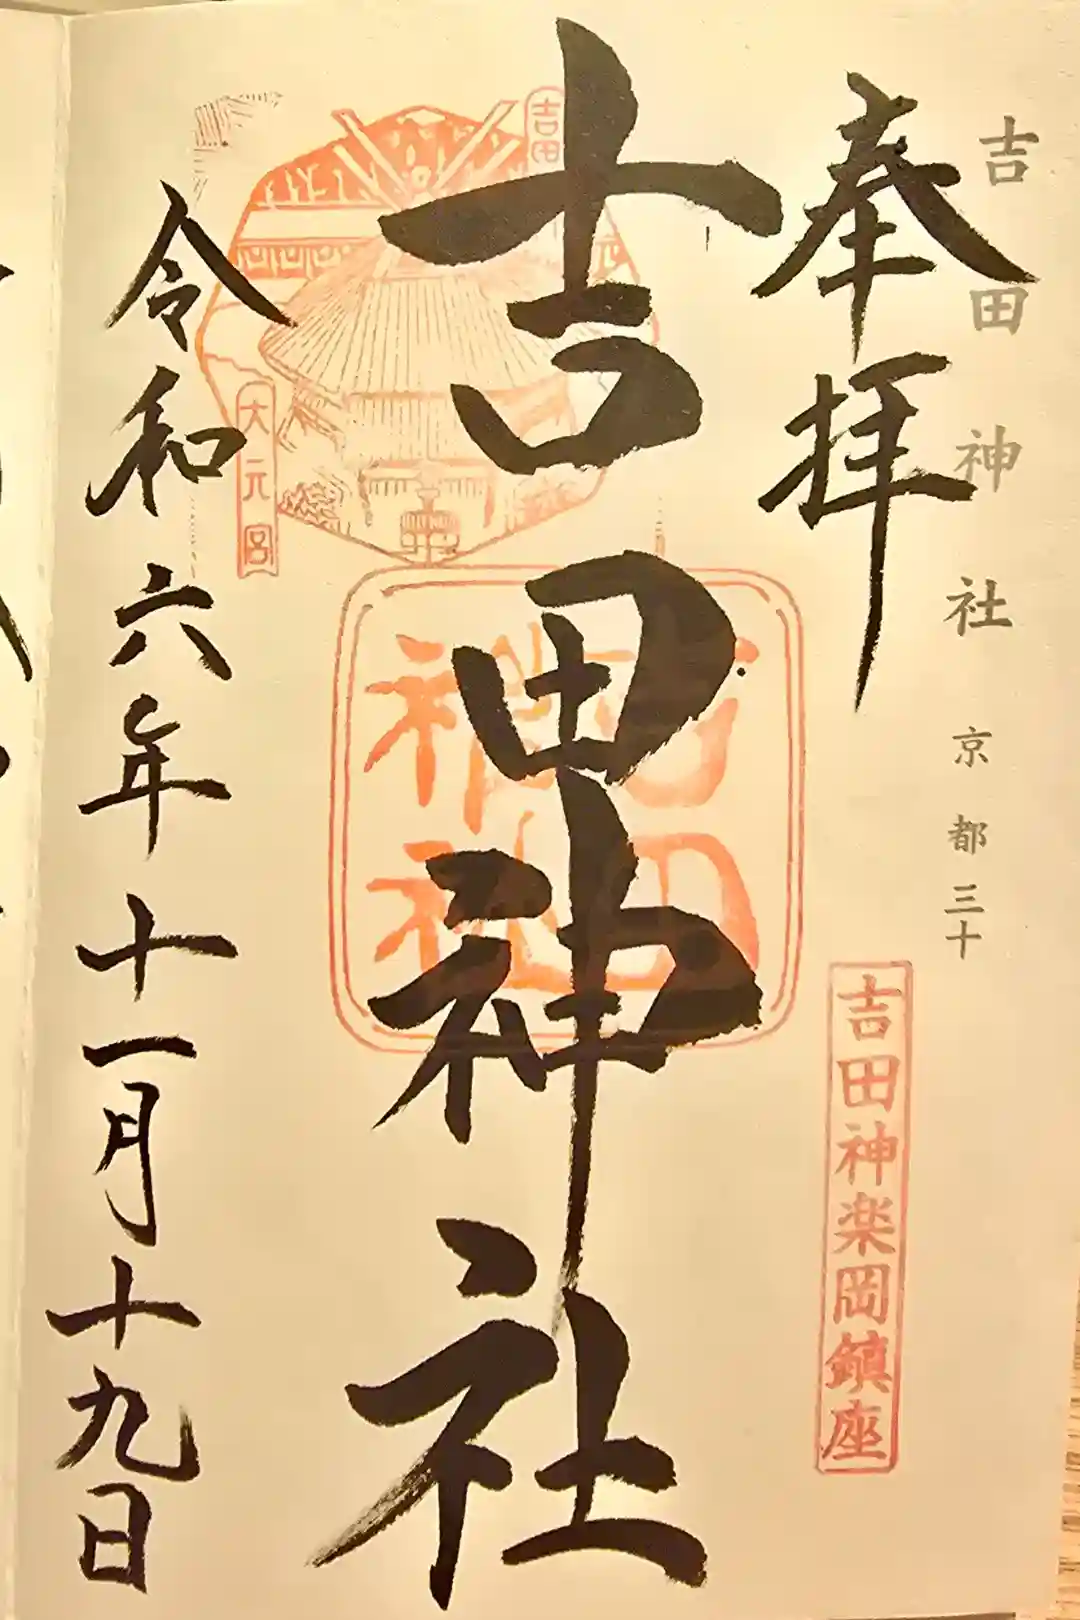 吉田神社 京都三十
奉拝
吉田神楽岡鎮座
吉田神社
吉田
吉田神社
大元宮
令和六年十一月十九日